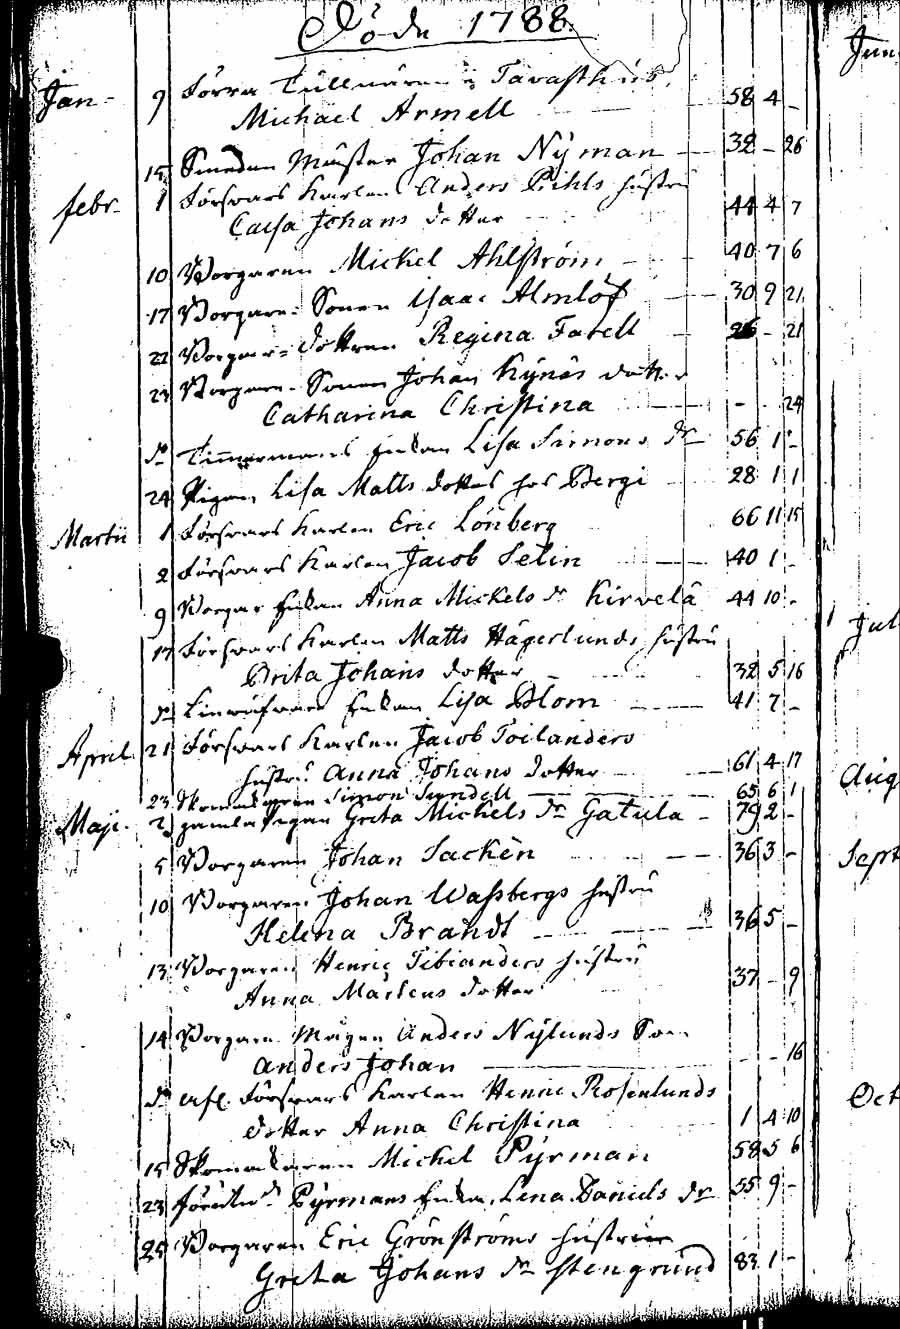 Döde 1788.
Jan- 9 Förra Tullnären i Tavasthus,
Michael Armell 58 4 -
15 Smeden Mäster Johan Nyman 32 - 26
febr. 1 Försvars Karlen Anders Pihls hustru
Caisa Johans dotter 44 4 7
10 Borgaren Mickel Ahlström 40 7 6
17 Borgare Sonen Isaac Almlöf 30 9 21
22 Borgare dottren Regina Farell 26 - 21
23 Borgare Sonen Johan Kynäs dotter
Catharina Christina - - 24
do Timmermans Enkan Lisa Simons dr 56 1 -
24 Pigan Lisa Matts dotter hos Bergi 28 1 1
Martii 1 Försvars Karlen Eric Lönberg 66 11 15
2 Försvars Karlen Jacob Selin 40 1 -
9 Borgar Enkan Anna Mickels dr Kirvelä 44 10 -
17 Försvars Karlen Matts Hägerlunds hustru
Brita Johans dotter 32 5 16
do Enkan Lisa Blom 41 7 -
April 21 Försvars Karlen Jacob Toilanders
hustru Anna Johans dotter 61 4 17
23 Skomakaren Simon Sundell 65 6 1
Maji. 2 gamla Pigan Greta Michels dr Gatula - 79 2 -
5 Borgaren Johan Sackèn 36 3 -
10 Borgaren Johan Wassbergs hustru
Helena Brandt 36 5 -
13 Borgaren Henric Tibianders hustru
Anna Mårtens dotter 37 - 9
14 Borgare Mågen Anders Nylunds Son
Anders Johan - - 16
do Försvars Karlen Henric Rosenlunds
dotter Anna Christina 1 4 10
15 Skomakaren Mickel Pyrman 58 5 6
23 Pyrmans Enka, Lena Daniels dr 55 9 -
25 Borgaren Eric Grönströms hustru
Greta Johans dr Stengrund 83 1 -
Jun
Jul
Aug
Sept
Oct